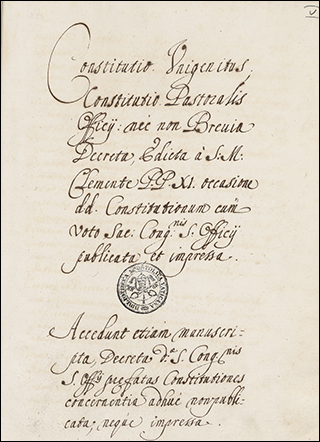 Constitutio Unigenitus.
Constitutio Pastoralis
Officÿ: nec non Brevia
Decreta, Edicta à S. M:
Clemente P.P. XI. occasione
dd. Constitutionum cum
Voto Sac: Cong.nis S. Officÿ
publicata et impressa.
Accedunt etiam manuscri-
pta, Decreta, d.æ S. Cong.nis
S. Offÿ præfatas Constitutiones
concernentia adhuc non publi-
cata, neque impressa.